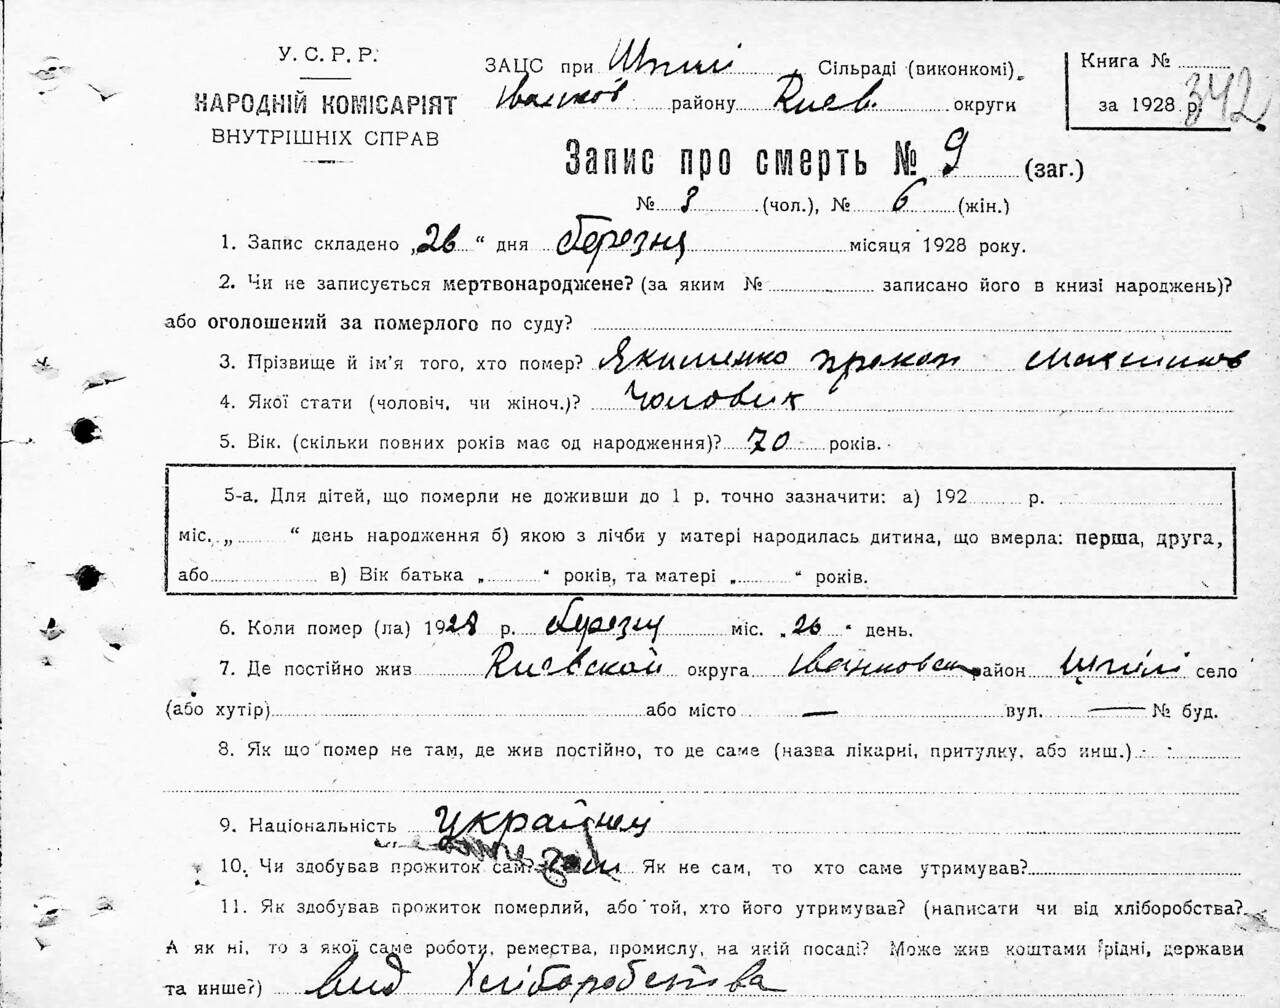 У. С. Р. Р.
НАРОДНІЙ КОМІСАРІЯТ
ВНУТРІШНІХ СПРАВ
ЗАЦС при Шпилі Сільраді (виконкомі)
Іванков району Киев. округи
Книга №
за 1928 р.
342
Запис про смерть № 9 (заг.)
№ 3 (чол.), № 6 (жін.)
1. Запис складено „26“ дня березня місяця 1928 року.
2. Чи не записується мертвонароджене? (за яким № записано його в книзі народжень)?
або оголошений за померлого по суду?
3. Прізвище й ім'я того, хто помер? Якименко Прокоп Максимов
4. Якої стати (чоловіч. чи жіноч.)? Чоловик
5. Вік. (скільки повних років має од народження)? 70 років.
5-а. Для дітей, що померли не доживши до 1 р. точно зазначити: а) 192 р.
міс. „ “ день народження б) якою з лічби у матері народилась дитина, що вмерла: перша, друга,
або в) Вік батька „ “ років, та матері „ “ років.
6. Коли помер (ла) 1928 р. березня міс. „26“ день.
7. Де постійно жив Киевской округа Иванковск район Шпилі село
(або хутір) або місто — вул. — № буд.
8. Як що помер не там, де жив постійно, то де саме (назва лікарні, притулку, або инш.)
9. Національність Украйнец
10. Чи здобував прожиток сам? Як не сам, то хто саме утримував?
11. Як здобував прожиток померлий, або той, хто його утримував? (написати чи від хліборобства?
А як ні, то з якої саме роботи, ремества, промислу, на якій посаді? Може жив коштами рідні, держави
та инше?) вид Хліборобства